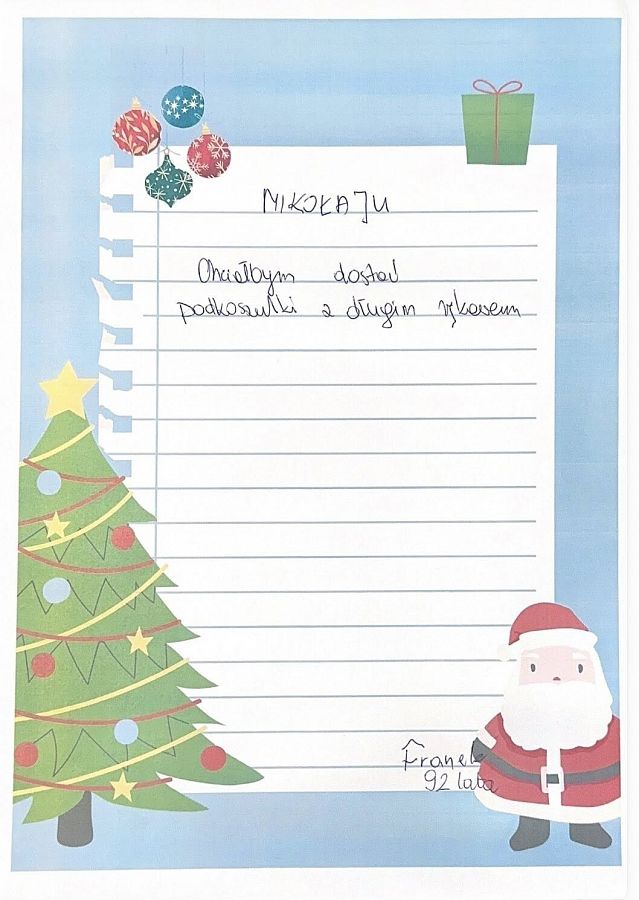 MIKOŁAJU
Chciałbym dostać
podkoszulki z długim rękawem
Franek
92 lata